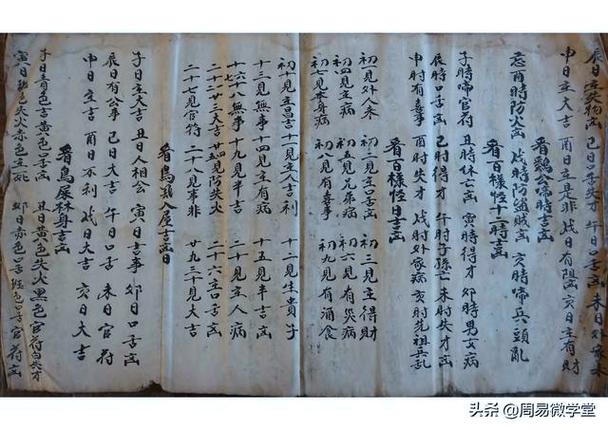 辰日主失物凶 午日口舌凶 未日
申日主大吉 酉日主是非 戌日有陽凶 亥日主有財
看鷄公啼時吉凶
忌酉時防火凶 戌時防盜賊凶 亥時啼兵頭亂
看百樣怪十二時吉凶
子時啼官符 丑時休亡凶 寅時得財 卯時男女病
辰時口舌凶 巳時得才 午時子孫亡 未時失才凶
申時有喜事 酉時失才 戌時外家病 亥時先祖兵乱
看百樣怪日吉凶
初一見外人來 初二見主口舌凶 初三見主得財
初四見主病 初五見兄弟病 初六見有災病
初七見本身病 初八見有喜事 初九見有酒食
初十見主昌吉 十一見主人吉利 十二見生貴子
十三見無事 十四見主有病 十五見半吉凶
十六十八無事 十九見半吉 二十見主人病
二十二十三大吉 廿四見防失火 二十六主口舌凶
二十七見官符 二十八見事非 廿九三十見大吉
看鳥鷄入屋吉凶日
子日主大吉 丑日人相公 寅日吉事 卯日口舌凶
辰日有公事 巳日大吉 午日口舌 未日官符
申日主吉 酉日不利 戌日大吉 亥日大吉
看鳥屎林身吉凶
子日青色吉黄色口舌凶 丑日黄色失火黑色官符白失才
寅日 色失火赤色主 卯日赤色口舌 色口舌官符凶
头条 @周易微学堂